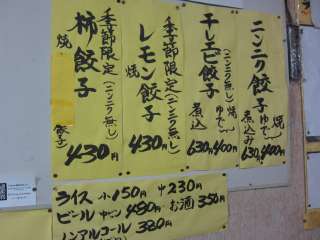 ニンニク餃子
焼 400円
ゆで 
煮込み 630円
干しエビ餃子
(ニンニク無し)
焼 400円
ゆで
煮込 630円
季節限定(ニンニク無し)
レモン餃子
焼
430円
季節限定(ニンニク無し)
柿餃子
焼
餃子
430円
ライス 小150円 中230円
ビール 中ビン 480円 お酒 350円
ノンアルコール 320円